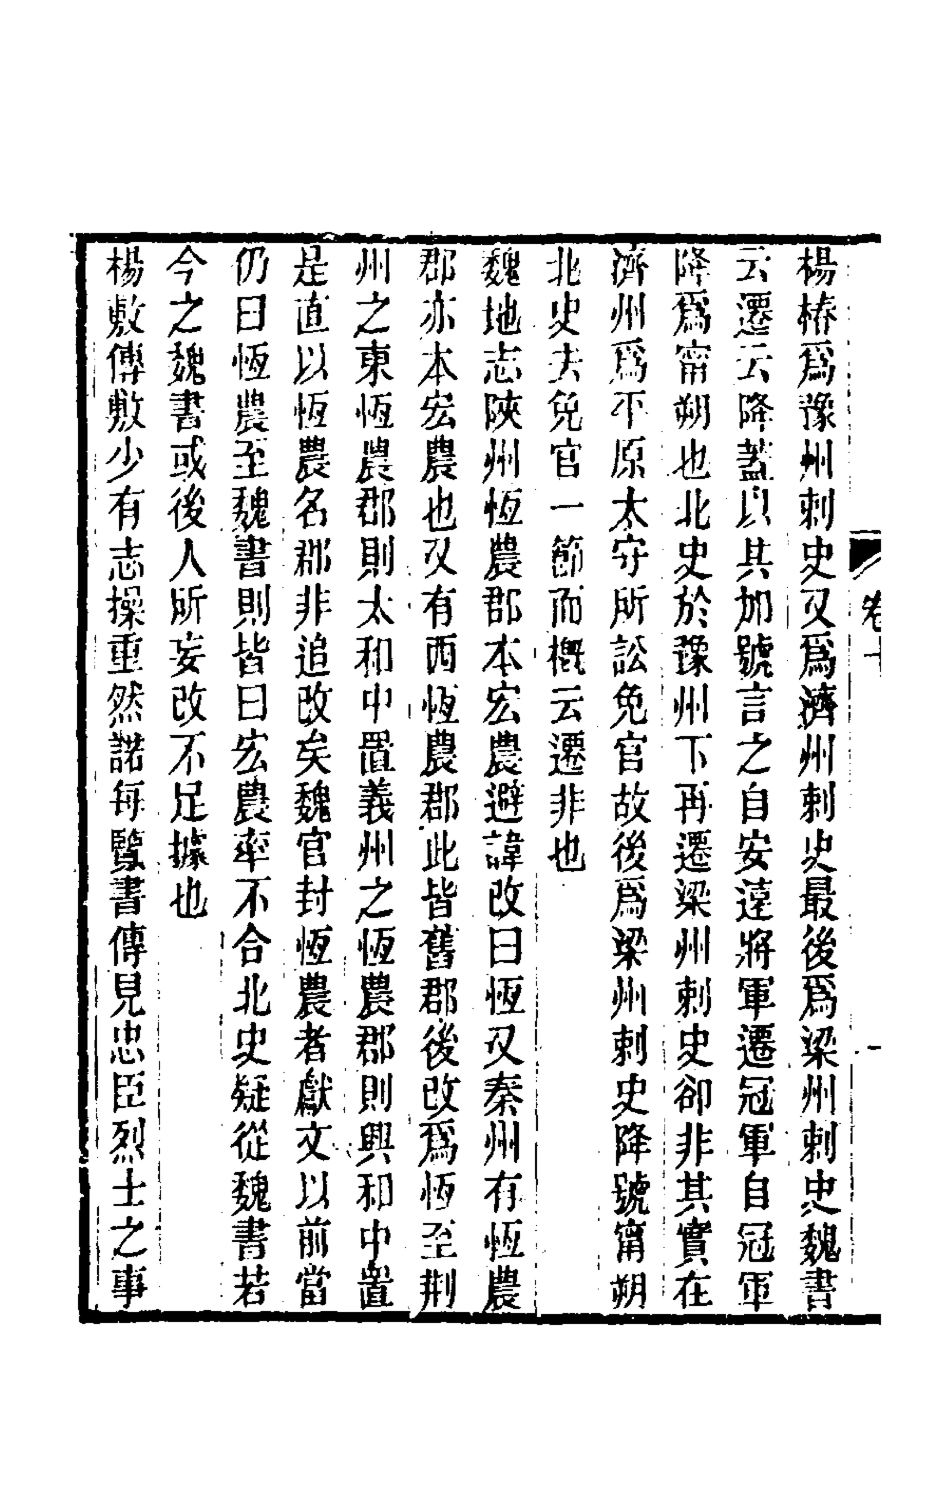 楊椿爲豫州刺史又爲濟州刺史最後爲梁州刺史魏書
云遷云降蓋以其加號言之自安遠將軍遷冠軍自冠軍
降爲甯朔也北史於豫州下再遷梁州刺史卻非其實在
濟州爲平原太守所訟免官故後爲梁州刺史降號甯朔
北史去免官一節而槪云遷非也
魏地志陝州恆農郡本宏農避諱改曰恆又秦州有恆農
郡亦本宏農也又有西恆農郡此皆舊郡後改爲恆至荆
州之東恆農郡則太和中置義州之恆農郡則興和中置
是直以恆農名郡非追改矣魏官封恆農者獻文以前當
仍曰恆農至魏書則皆曰宏農率不合北史疑從魏書若
今之魏書或後人所妄改不足據也
楊敷傳敷少有志操重然諾每覽書傳見忠臣烈士之事
卷十